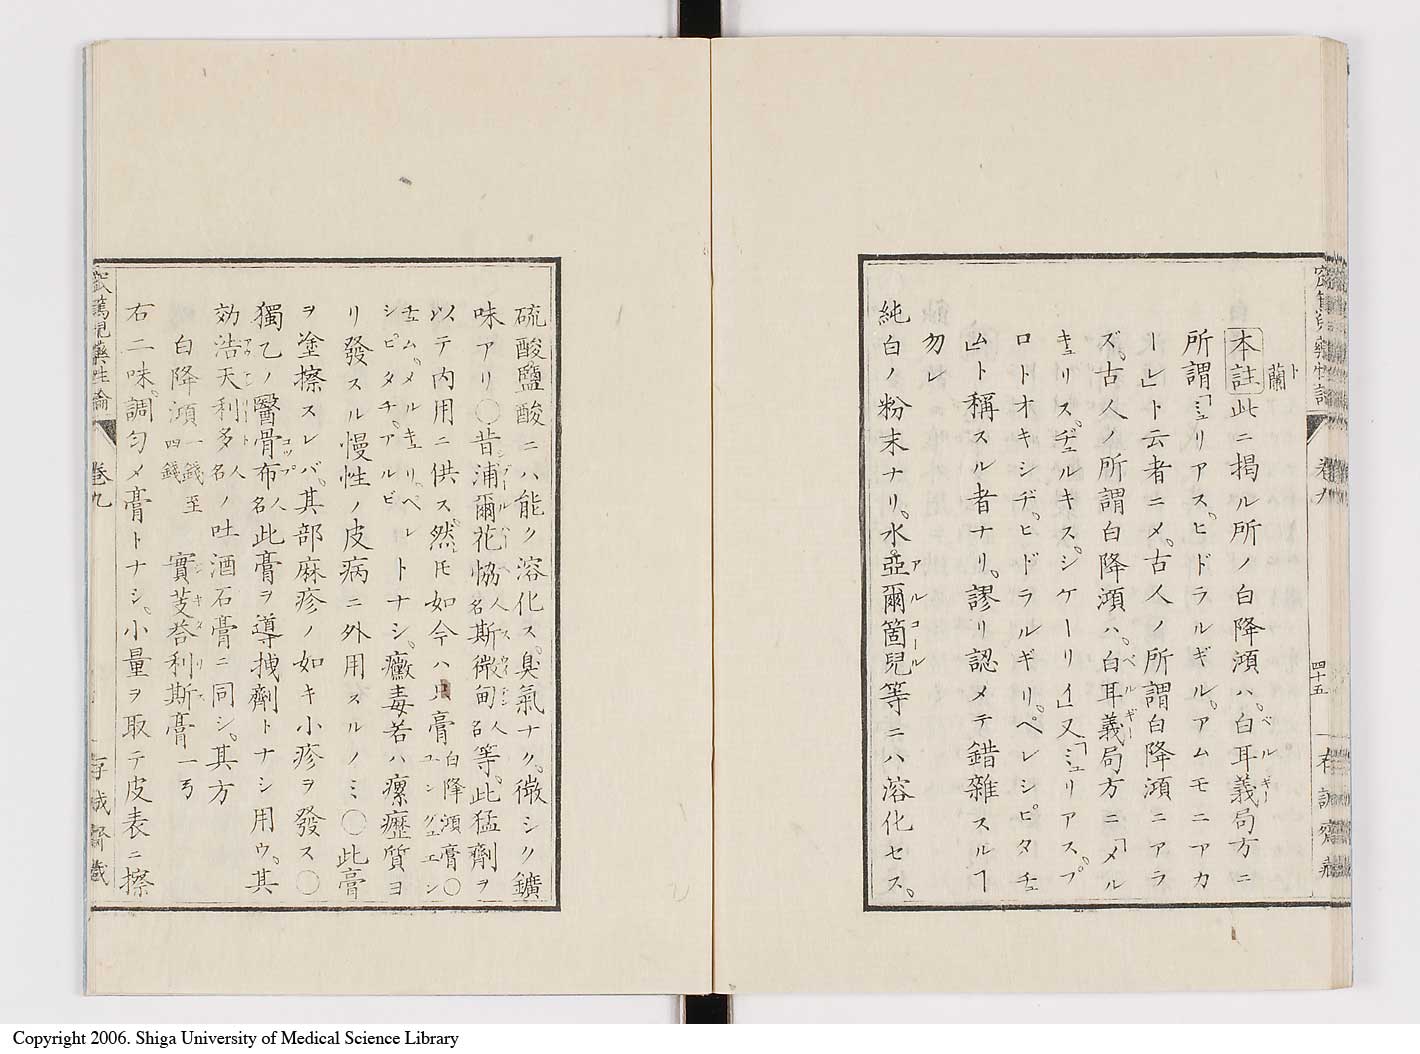 蘭ト
本註此ニ掲ル所ノ白降澒ハ。白耳義局方ニ
ベルギー
所謂「ミュリアス。ヒドラルギル。アムモニアカ
ーレ」ト云者ニメ。古人ノ所謂白降澒ニアラ
ズ。古人ノ所謂白降澒ハ。白耳義局方ニ「メル
ベルギー
キュリス。ヂュルキス。シケーリイ」又「ミュリアス。プ
ロトオキシヂ。ヒドラルギリ。ペレシピタチュ
ム」ト稱スル者ナリ。謬リ認メテ錯雜スルヿ
勿レ
純白ノ粉末ナリ。水。亞爾箇兒等ニハ溶化セス。
アルコール
四十五
硫酸鹽酸ニハ能ク溶化ス。臭氣ナク。微シク鑛
味アリ〇昔浦爾花恊人名斯微甸人名等。此猛劑ヲ
以テ内用ニ供ス。然𪜈如今ハ只膏白降澒膏〇ユングエン
チュム。メルキュリ。ペレシピタチ。アルビトナシ。黴毒若ハ瘰癧質ヨ
リ發スル慢性ノ皮病ニ外用スルノミ〇此膏
ヲ塗擦スレバ。其部麻疹ノ如キ小疹ヲ發ス〇
獨乙ノ醫骨布人名此膏ヲ導拽劑トナシ用ウ。其
コップ
効浩天利多人名ノ吐酒石膏ニ同シ。其方
白降澒一錢至四錢　實芰荅利斯膏一𠀋
シキタリス
右二味。調勻メ膏トナシ。小量ヲ取テ皮表ニ擦
卷九
存誠齋藏